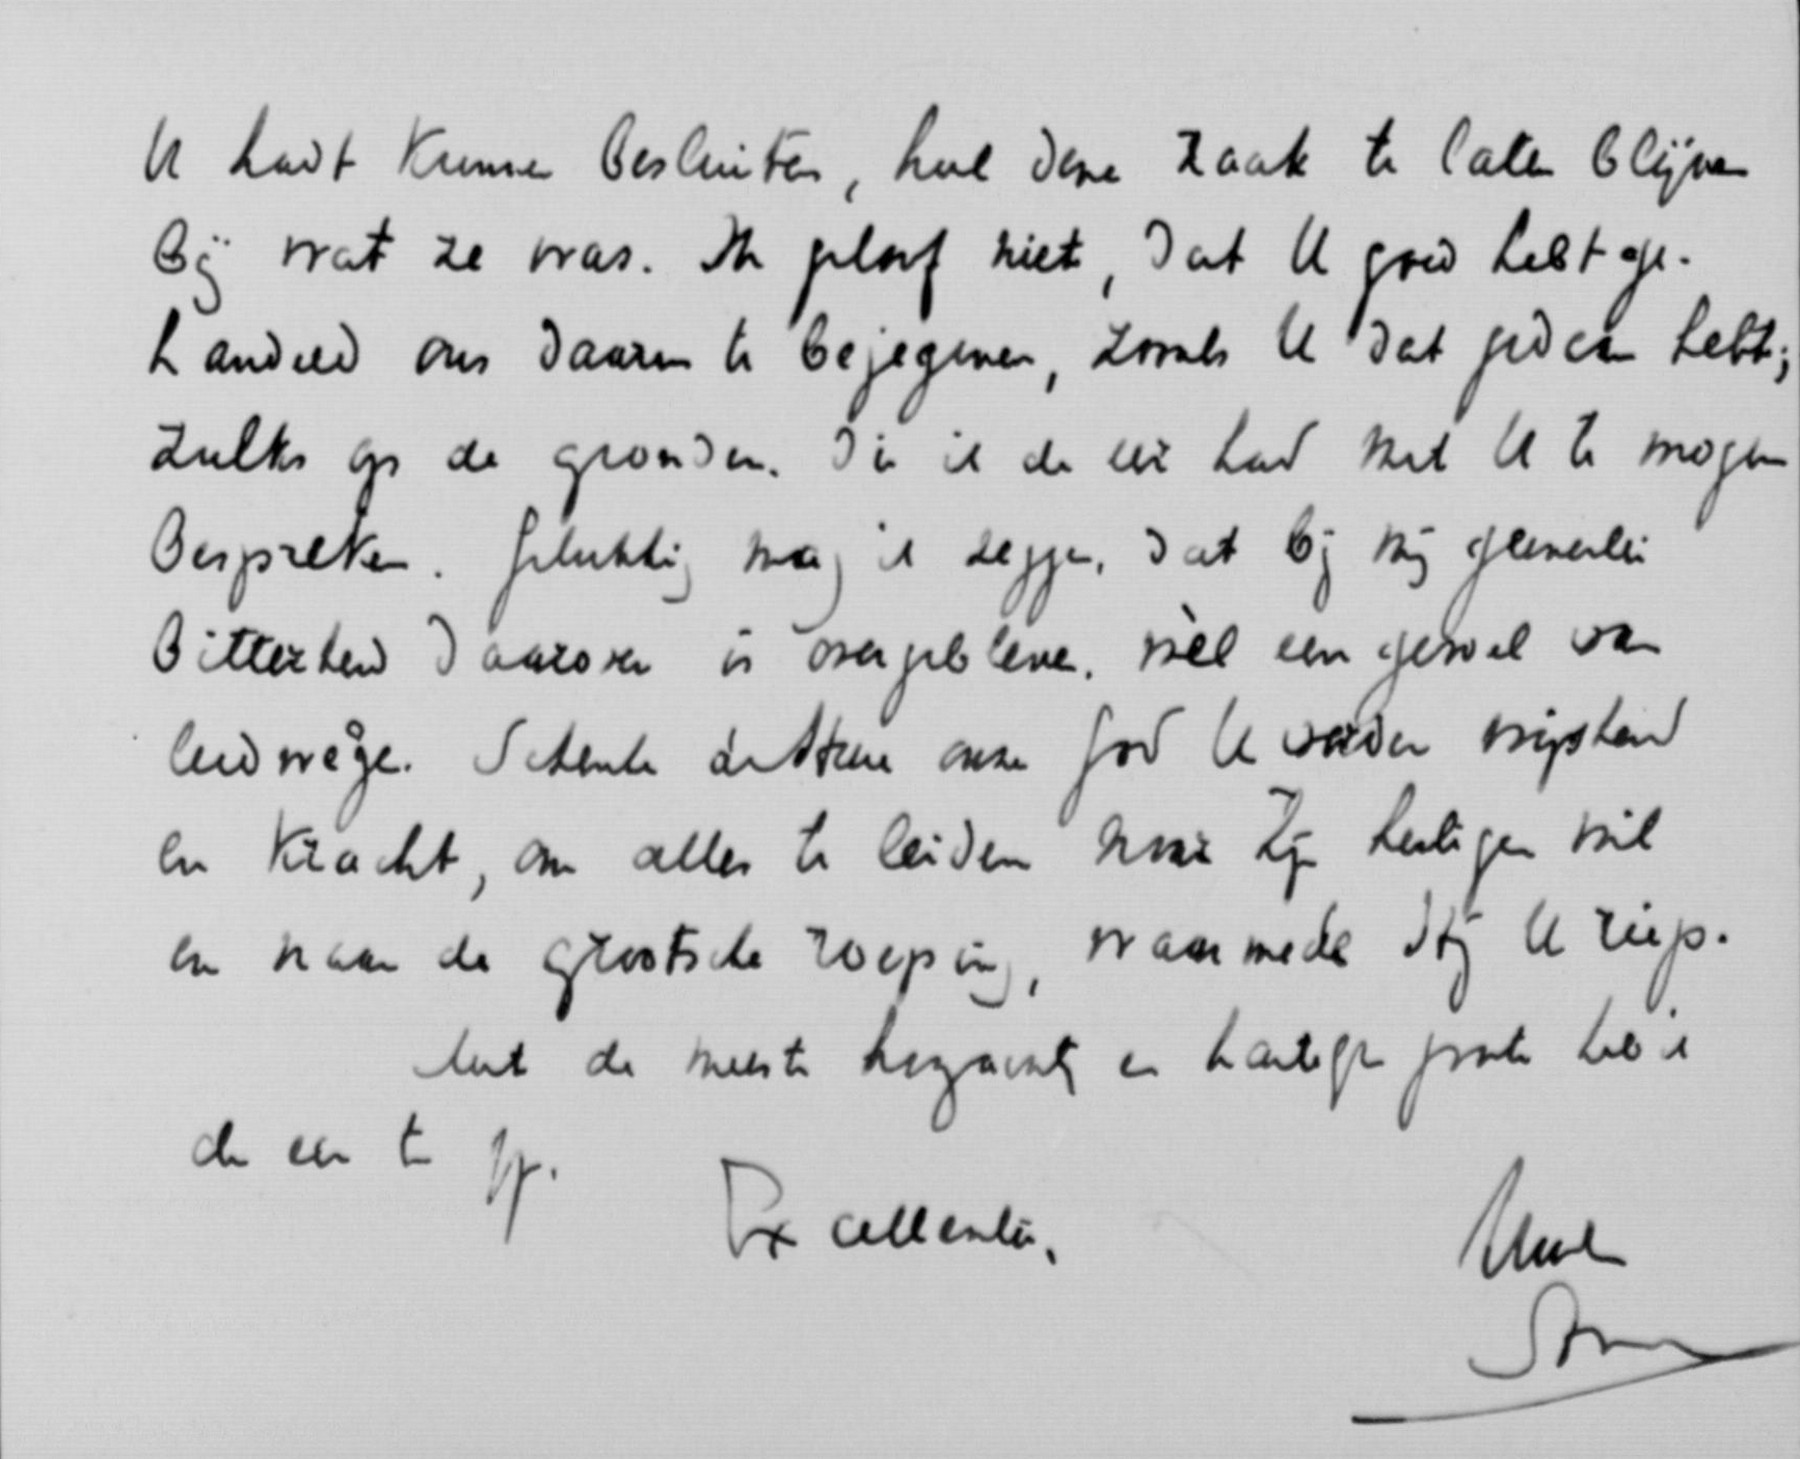 U hadt kunnen besluiten, heel deze zaak te laten blijven
bij wat ze was. Ik geloof niet, dat U goed hebt ge-
handeld ons daarin te bejegenen, zooals U dat gedaan hebt;
zulks op de gronden, die ik de eer had met U te mogen
bespreken. Gelukkig mag ik zeggen, dat bij mij geenerlei
bitterheid daarover is overgebleven, wèl een gevoel van
leedwezen. Schenke onze God U verder wijsheid
en kracht, om alles te leiden naar Zijn heiligen wil
en naar de grootsche roeping, waarmede Hij U riep.
Met de meeste hoogachting en hartelijke groete heb ik
de eer te zijn
Excellentie,